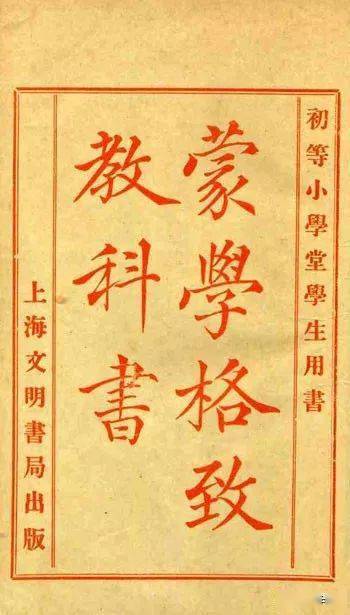 初等小學堂學生用書
蒙學格致
教科書
上海文明書局出版